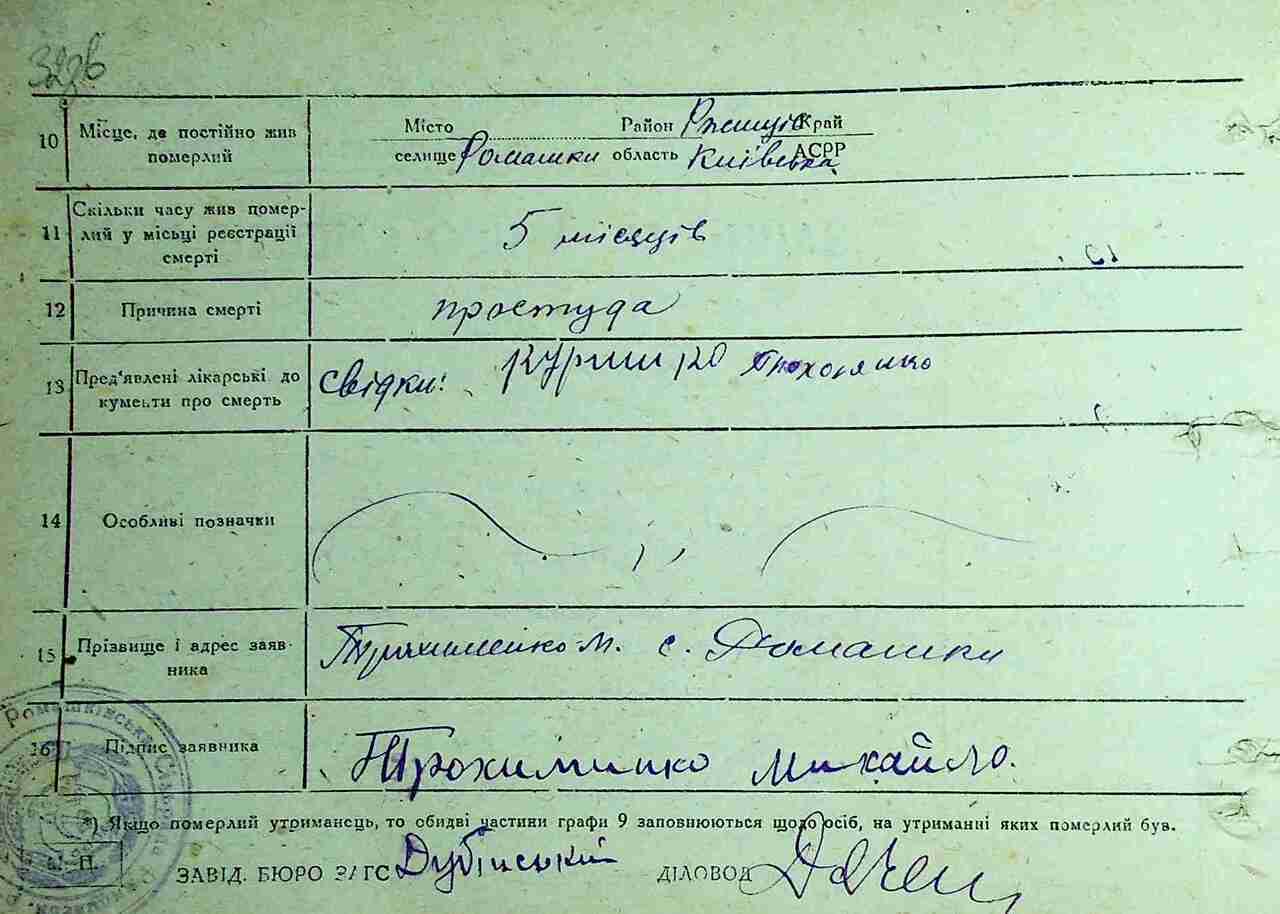 10 Місце, де постійно жив померлий
Місто Район Ржищів Край
селище Ромашки область Київська АСРР
11 Скільки часу жив помер-
лий у місці реєстрації
смерті
5 місяців
12 Причина смерті простуда
13 Пред'явлені лікарські до
кументи про смерть
Свідки:
14 Особливі позначки
15 Прізвище і адрес заяв-
ника
Трохименко М. с. Ромашки
16 Підпис заявника
Трохиминко Михайло.
*) Якщо померлий утриманець, то обидві частини графи 9 заповнюються щодо осіб, на утриманні яких померлий був.
ЗАВІД. БЮРО ЗАГС Дубінський ДІЛОВОД